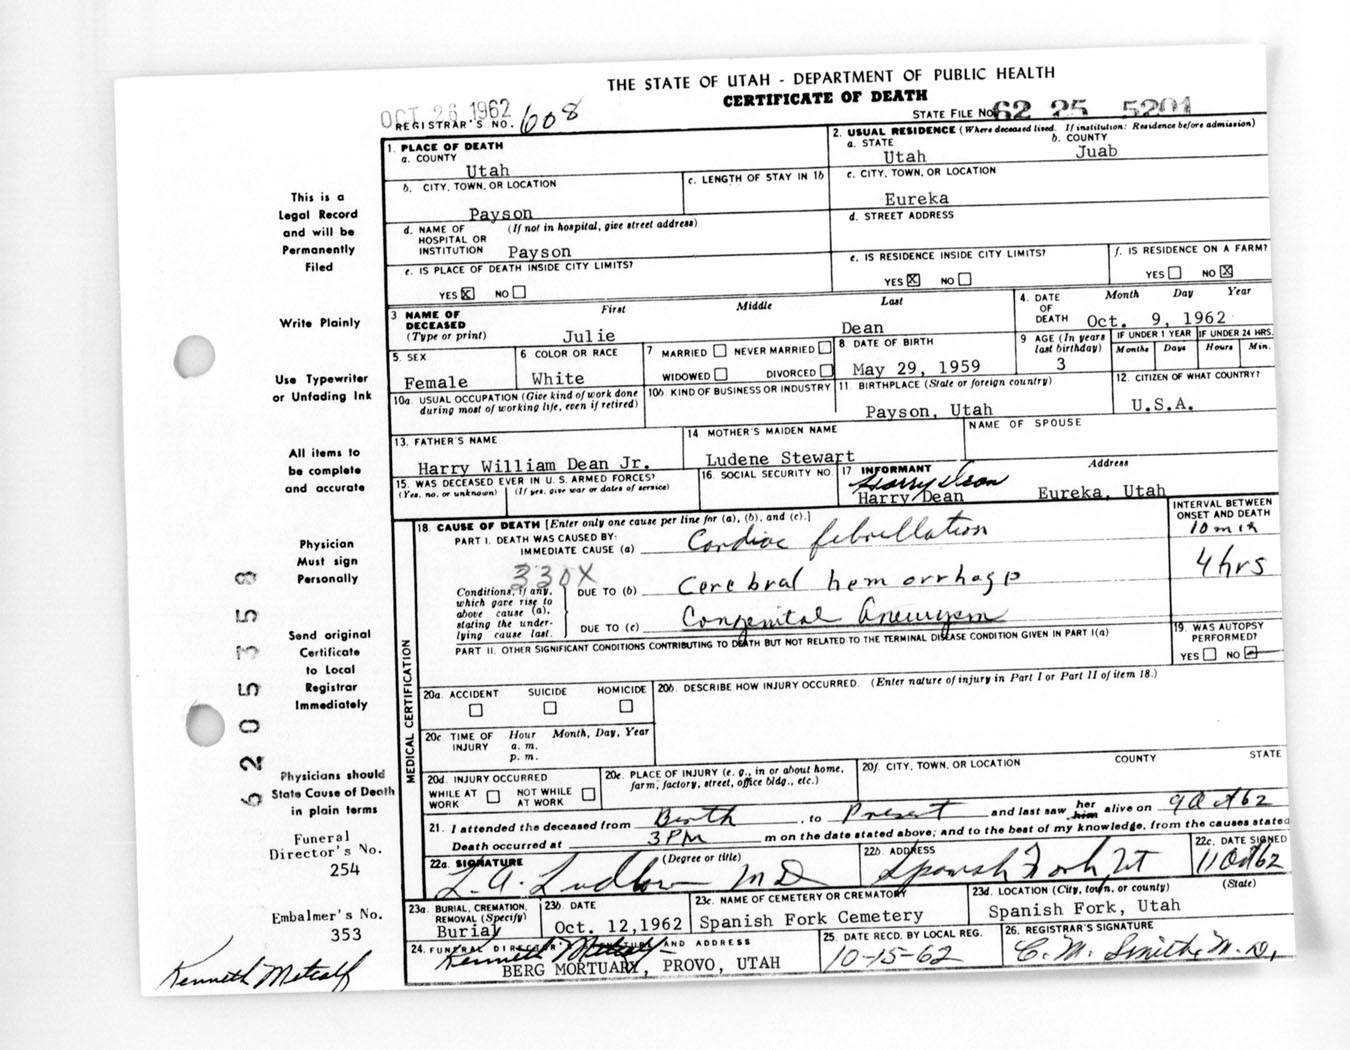 THE STATE OF UTAH - DEPARTMENT OF PUBLIC HEALTH
CERTIFICATE OF DEATH
OCT 26 1962
REGISTRAR'S NO. 608
STATE FILE NO. 62 25 5201
1. PLACE OF DEATH
a. COUNTY
Utah
2. USUAL RESIDENCE (Where deceased lived. If institution: Residence before admission)
a. STATE
Utah
b. COUNTY
Juab
b. CITY, TOWN, OR LOCATION
Payson
c. LENGTH OF STAY IN 1b
c. CITY, TOWN, OR LOCATION
Eureka
d. NAME OF HOSPITAL OR INSTITUTION
(If not in hospital, give street address)
Payson
d. STREET ADDRESS
e. IS PLACE OF DEATH INSIDE CITY LIMITS?
YES X NO
e. IS RESIDENCE INSIDE CITY LIMITS?
YES X NO
f. IS RESIDENCE ON A FARM?
YES NO X
3. NAME OF DECEASED (Type or print)
First Middle Last
Julie Dean
4. DATE OF DEATH
Month Day Year
Oct. 9, 1962
5. SEX
Female
6 COLOR OR RACE
White
7 MARRIED NEVER MARRIED
WIDOWED DIVORCED
8. DATE OF BIRTH
May 29, 1959
9 AGE (In years last birthday)
3
IF UNDER 1 YEAR
Months Days
IF UNDER 24 HRS.
Hours Min.
10a. USUAL OCCUPATION (Give kind of work done during most of working life, even if retired)
10b. KIND OF BUSINESS OR INDUSTRY
11. BIRTHPLACE (State or foreign country)
Payson, Utah
12. CITIZEN OF WHAT COUNTRY?
U.S.A.
13. FATHER'S NAME
Harry William Dean Jr.
14. MOTHER'S MAIDEN NAME
Ludene Stewart
NAME OF SPOUSE
15. WAS DECEASED EVER IN U.S. ARMED FORCES?
(Yes, no, or unknown) (If yes, give war or dates of service)
16. SOCIAL SECURITY NO.
17. INFORMANT
Address
Harry Dean
Harry Dean Eureka, Utah
18. CAUSE OF DEATH [Enter only one cause per line for (a), (b), and (c).]
INTERVAL BETWEEN ONSET AND DEATH
PART I. DEATH WAS CAUSED BY:
IMMEDIATE CAUSE (a) Cardiac febrillation
10 min
330X
Conditions, if any, which gave rise to above cause (a), stating the underlying cause last.
DUE TO (b) Cerebral hemorrhage
4 hrs
DUE TO (c) Congenital Aneurysm
PART II. OTHER SIGNIFICANT CONDITIONS CONTRIBUTING TO DEATH BUT NOT RELATED TO THE TERMINAL DISEASE CONDITION GIVEN IN PART I(a)
19. WAS AUTOPSY PERFORMED?
YES NO
MEDICAL CERTIFICATION
20a. ACCIDENT SUICIDE HOMICIDE
20b. DESCRIBE HOW INJURY OCCURRED. (Enter nature of injury in Part I or Part II of item 18.)
20c. TIME OF INJURY
Hour Month, Day, Year
a. m.
p. m.
20d. INJURY OCCURRED
WHILE AT WORK NOT WHILE AT WORK
20e. PLACE OF INJURY (e. g., in or about home, farm, factory, street, office bldg., etc.)
20f. CITY, TOWN, OR LOCATION COUNTY STATE
21. I attended the deceased from Birth, to Present and last saw her him alive on 9 Oct 62
Death occurred at 3 PM m on the date stated above; and to the best of my knowledge, from the causes stated
22a. SIGNATURE (Degree or title)
L. A. Ludlow M D
22b. ADDRESS
Spanish Fork Ut
22c. DATE SIGNED
11 Oct 62
23a. BURIAL, CREMATION, REMOVAL (Specify)
Burial
23b. DATE
Oct. 12, 1962
23c. NAME OF CEMETERY OR CREMATORY
Spanish Fork Cemetery
23d. LOCATION (City, town, or county) (State)
Spanish Fork, Utah
24. FUNERAL DIRECTOR'S SIGNATURE AND ADDRESS
Kenneth Metcalf
BERG MORTUARY, PROVO, UTAH
25. DATE RECD. BY LOCAL REG.
10-15-62
26. REGISTRAR'S SIGNATURE
C. M. Smith, M. D.,
This is a
Legal Record
and will be
Permanently
Filed
Write Plainly
Use Typewriter
or Unfading Ink
All items to
be complete
and accurate
Physician
Must sign
Personally
Send original
Certificate
to Local
Registrar
Immediately
Physicians should
State Cause of Death
in plain terms
Funeral
Director's No.
254
Embalmer's No.
353
Kenneth Metcalf